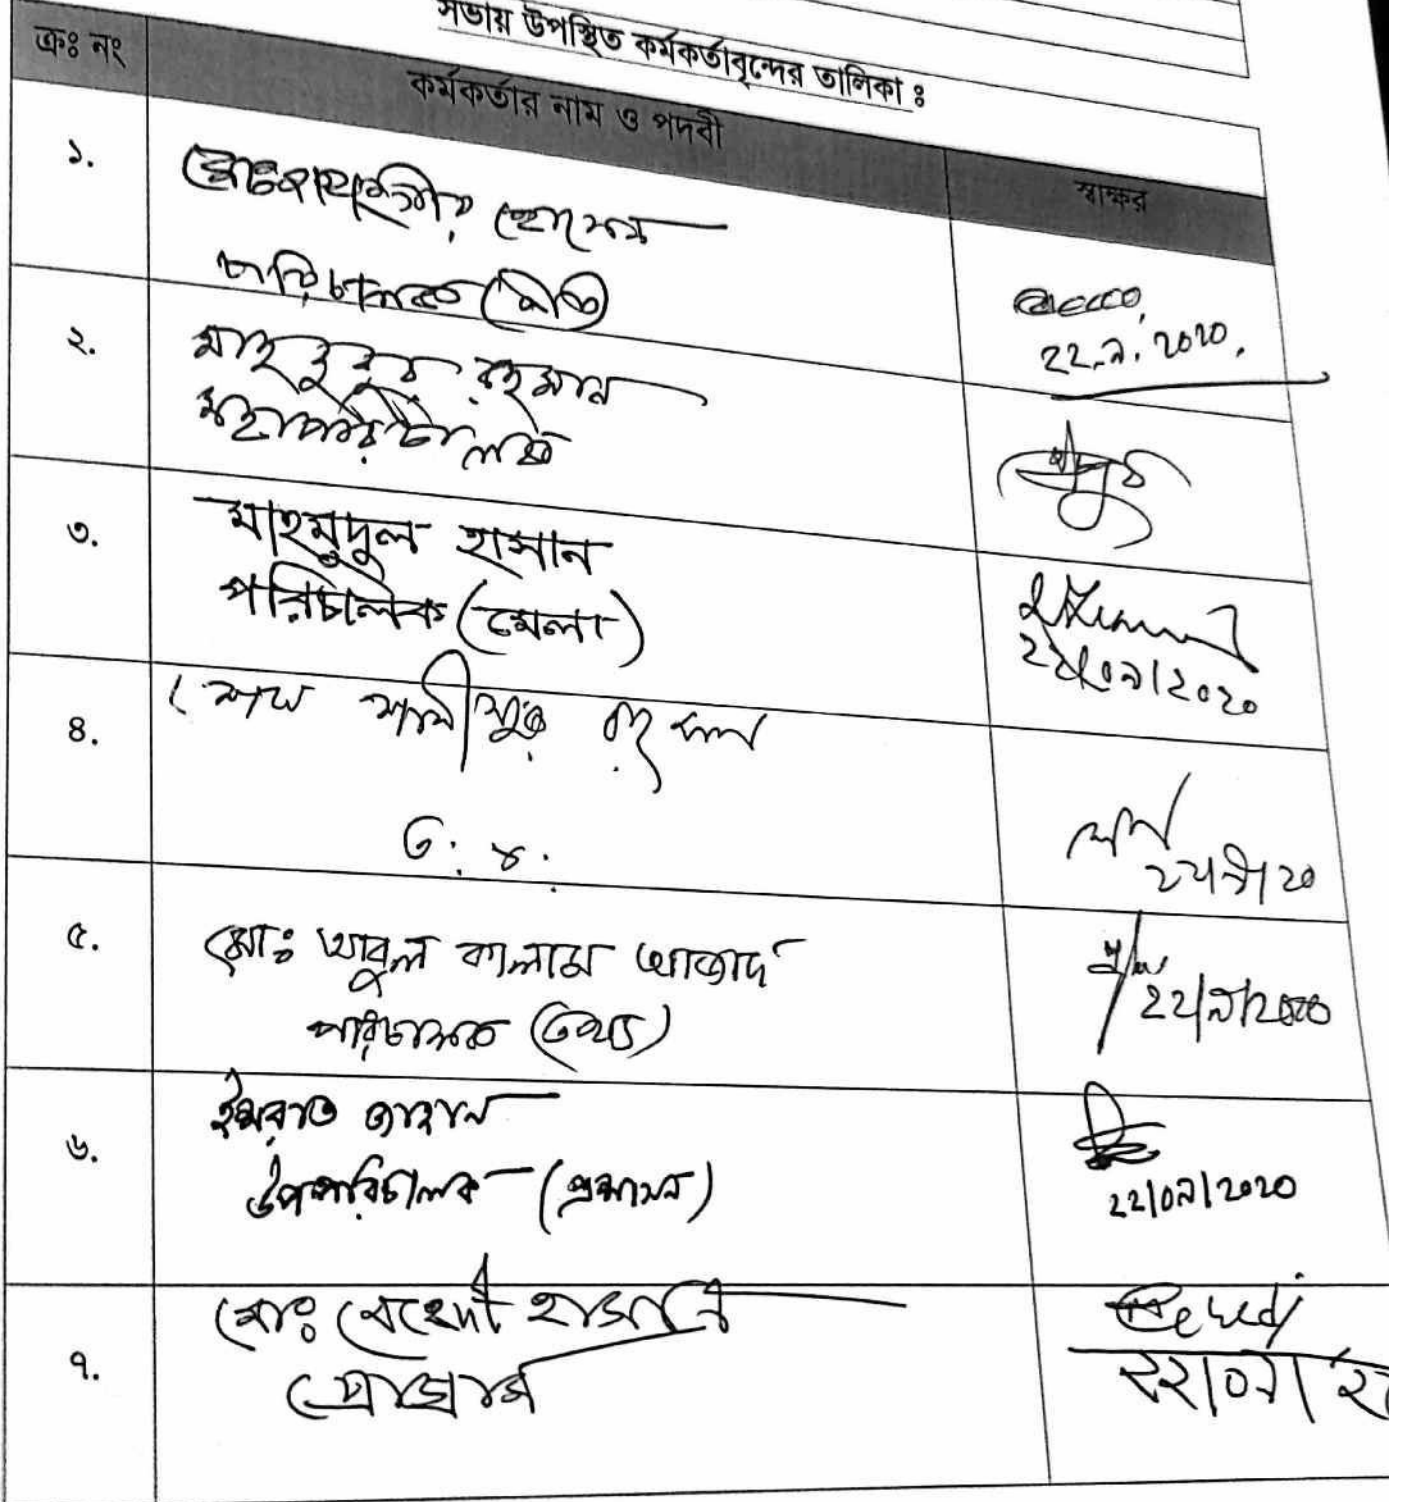 সভায় উপস্থিত কর্মকর্তাবৃন্দের তালিকা ঃ
ক্রঃ নং কর্মকর্তার নাম ও পদবী স্বাক্ষর
১. হোসেন
পরিচালক (নীতি)
২২.৯.২০২০.
২. মাহবুবুর রহমান
মহাপরিচালক
৩. মাহমুদুল হাসান
পরিচালক (মেলা)
২২/০৯/২০২০
৪. শেখ রহমান
২২/৯/২০
৫. মোঃ আবুল কালাম আজাদ
পরিচালক (তথ্য)
২২/৯/২০২০
৬. ইসরাত জাহান
উপপরিচালক (প্রশাসন)
২২/০৯/২০২০
৭. মোঃ মেহেদী হাসান
প্রোগ্রামার
Mehedi
২২/০৯/২